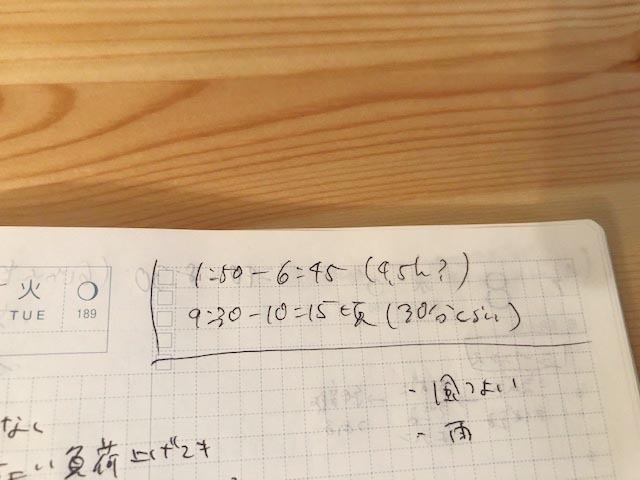 火
TUE
189
1:50-6:45 (4.5h?)
9:30-10:15頃 (30分くらい)
・風つよい
・雨
なく
負荷上げてす